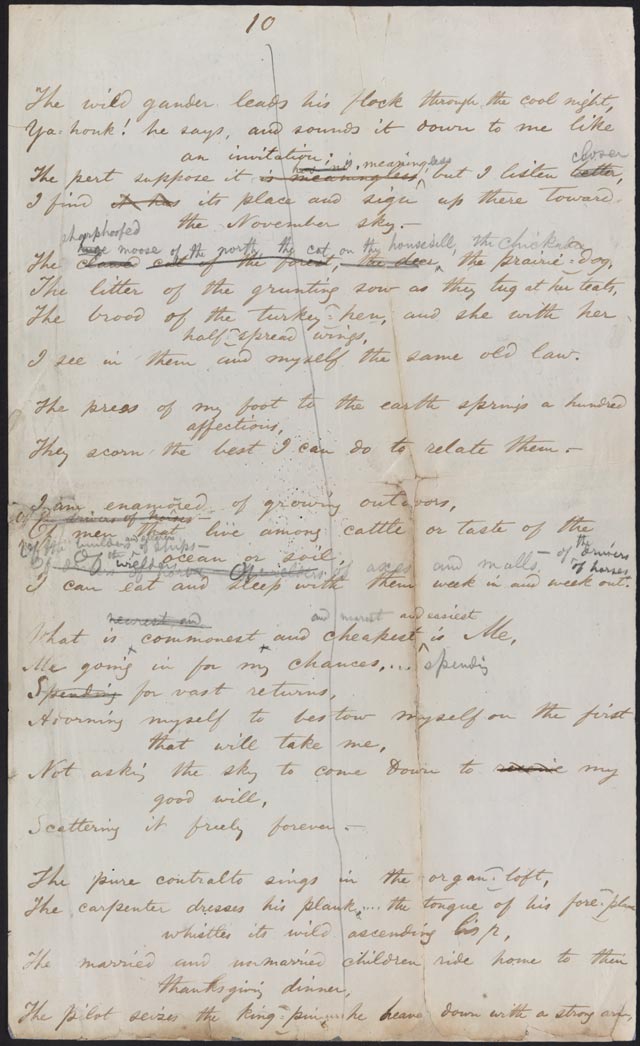 10
The wild gander leads his flock through the cool night,
Ya-honk! he says, and sounds it down to me like
an invitation;
it is meaningless closer
The pert suppose it is meaningless, but I listen better,
I find it has its place and sign up there toward
the November sky.—
sharphoofed
huge moose of the north, the cat on the housesill, the chickadee
The clawed cat of the forest, the deer, the prairie-dog,
The litter of the grunting sow as they tug at her teats,
The brood of the turkey-hen, and she with her
half-spread wings,
I see in them and myself the same old law.
The press of my foot to the earth springs a hundred
affections,
They scorn the best I can do to relate them.—
I am enamored of growing outdoors,
Of drivers of horses
Of men that live among cattle or taste of the
Of the builders and of ships—
ocean or soil,
Of the wielders of axes and mauls,— of the drivers of horses
I can eat and sleep with them week in and week out.
nearest and and nearest and easiest
What is commonest and cheapest is Me,
Me going in for my chances,... spending
Spending for vast returns,
Adorning myself to bestow myself on the first
that will take me,
Not asking the sky to come down to my
good will,
Scattering it freely forever.—
The pure contralto sings in the organ-loft,
The carpenter dresses his plank,... the tongue of his fore-plane
whistles its wild ascending lisp,
The married and unmarried children ride home to their
thanksgiving dinner,
The pilot seizes the king-pin, he heaves down with a strong arm,